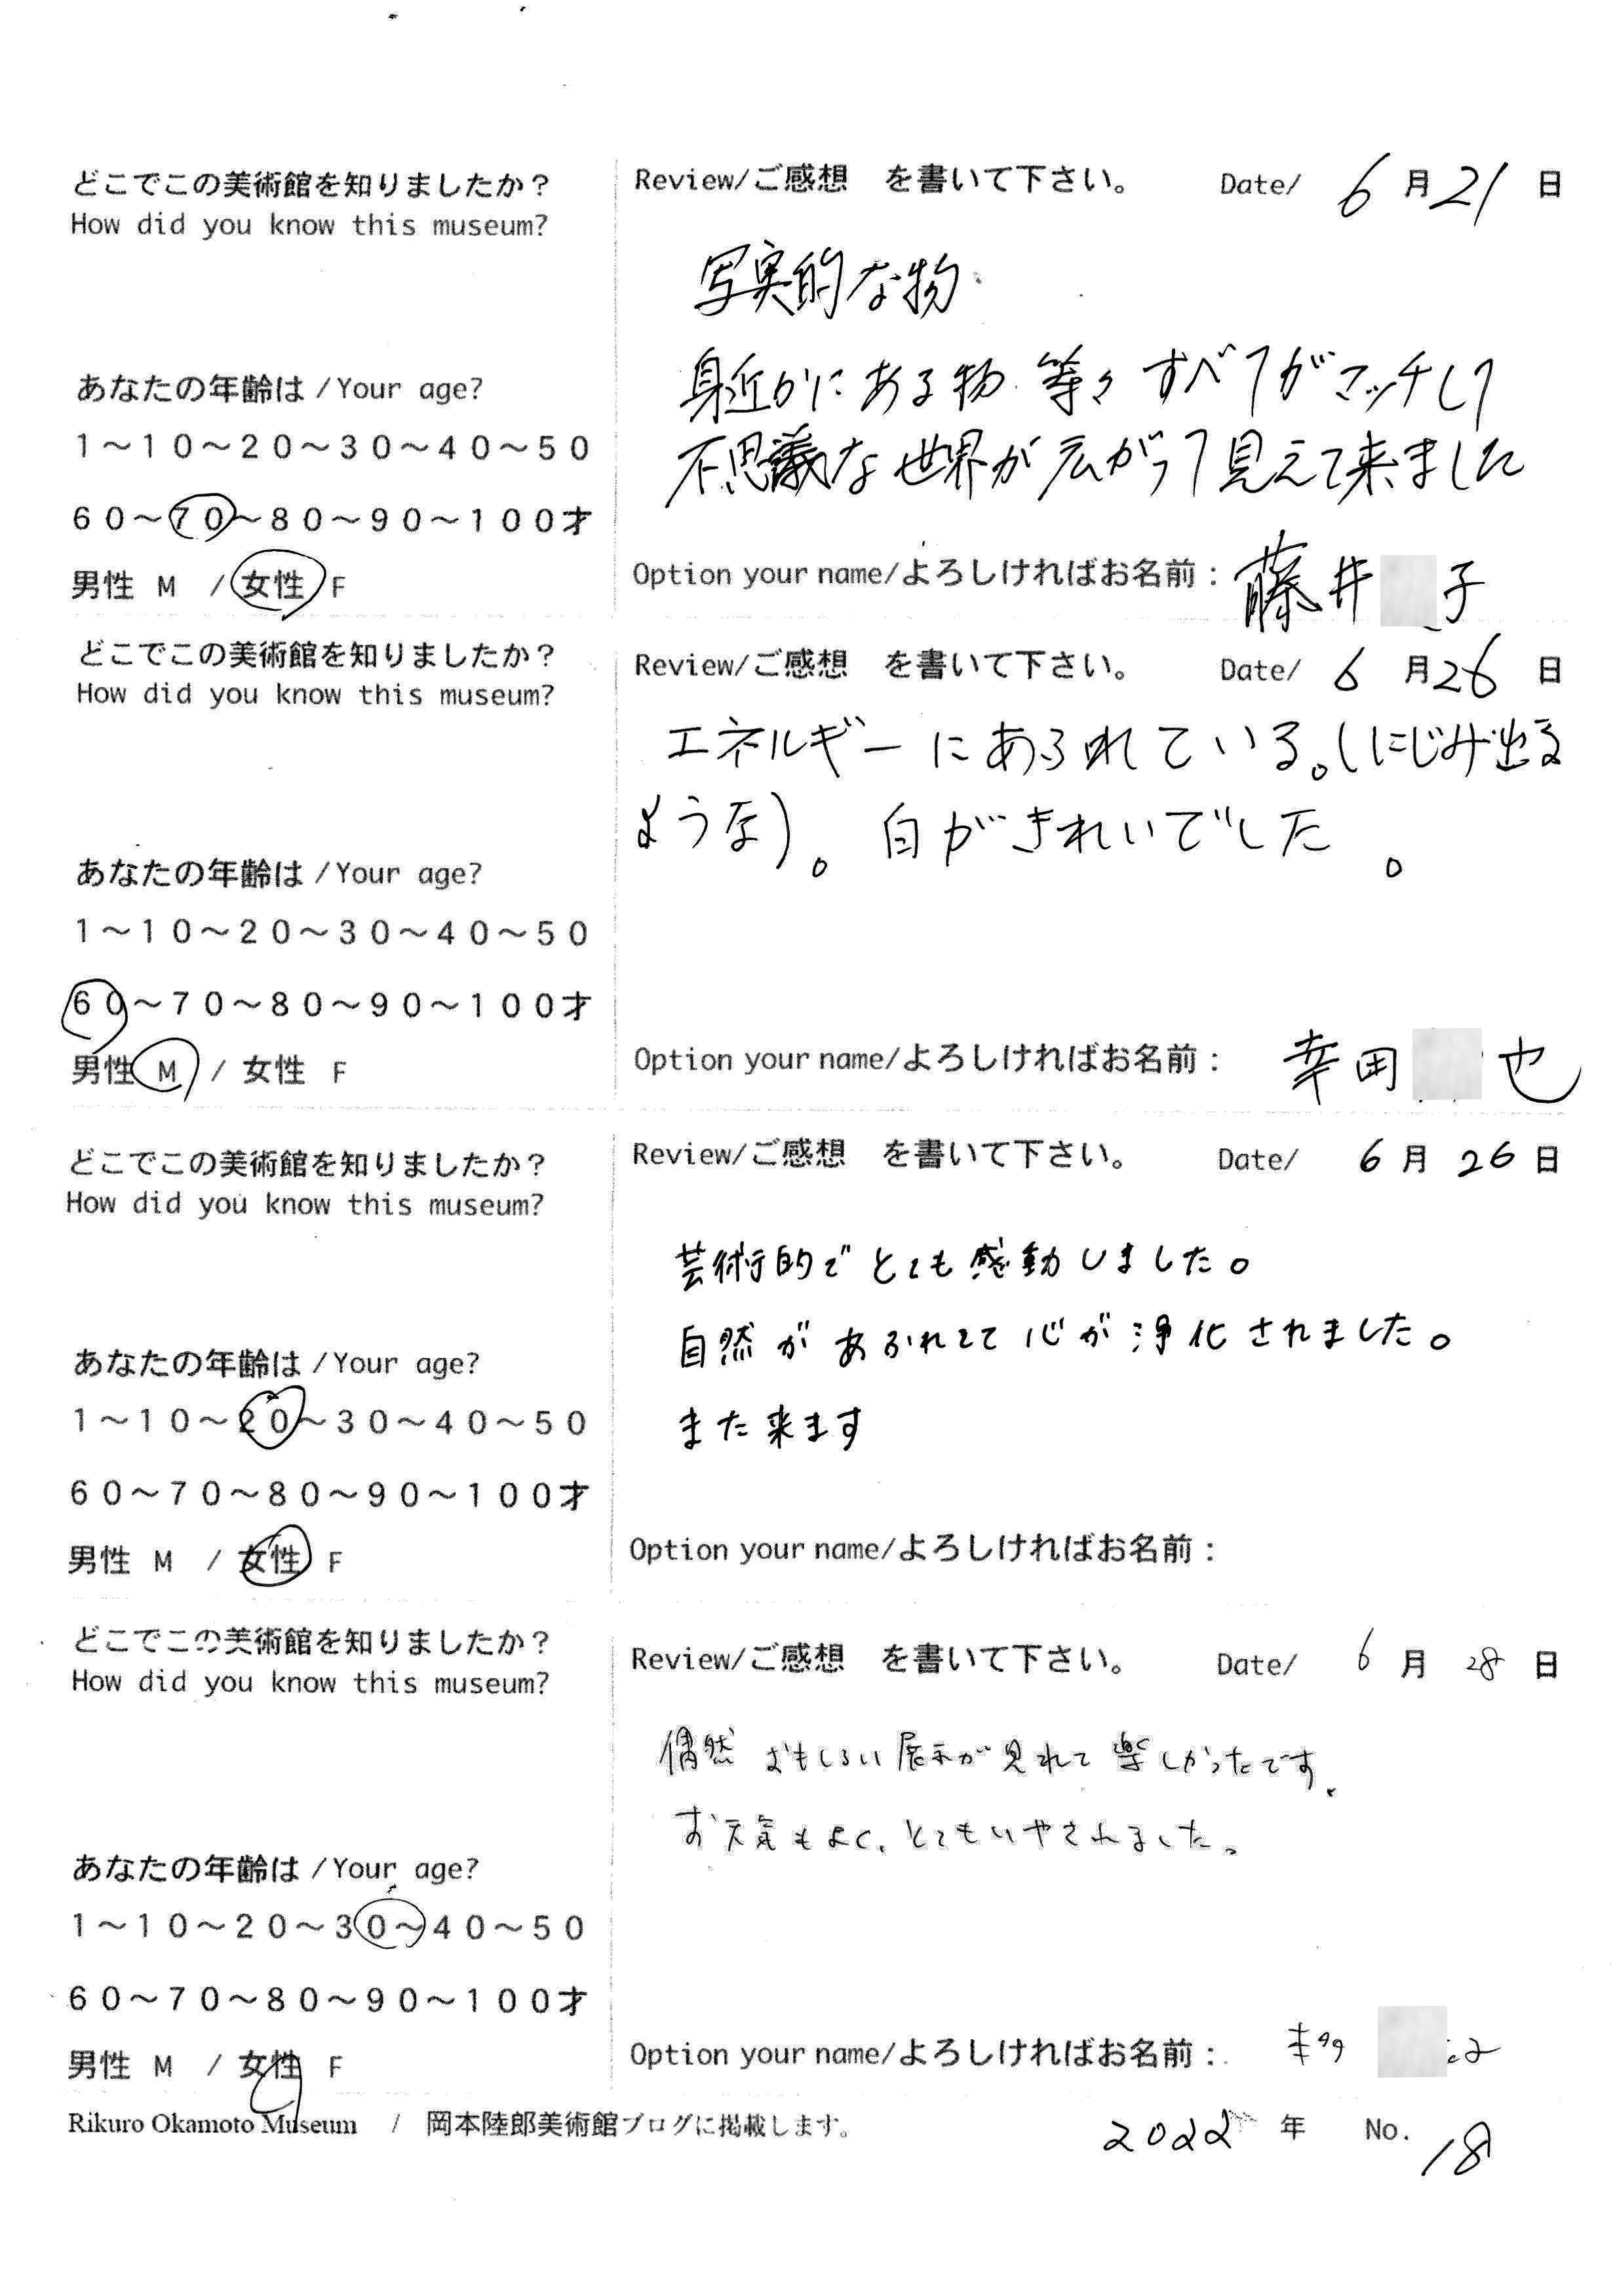 どこでこの美術館を知りましたか？
How did you know this museum?
Review/ご感想　を書いて下さい。 Date/ 6 月 21 日
写実的な物
身近かにある物 等々 すべてがマッチして
不思議な世界が広がって見えて来ました
あなたの年齢は /Your age?
1～10～20～30～40～50
60～70～80～90～100才
男性 M / 女性 F
Option your name/よろしければお名前： 藤井 子
どこでこの美術館を知りましたか？
How did you know this museum?
Review/ご感想　を書いて下さい。 Date/ 6 月 26 日
エネルギーにあふれている。(にじみ出る
ような)。白がきれいでした。
あなたの年齢は /Your age?
1～10～20～30～40～50
60～70～80～90～100才
男性 M / 女性 F
Option your name/よろしければお名前： 幸田 也
どこでこの美術館を知りましたか？
How did you know this museum?
Review/ご感想　を書いて下さい。 Date/ 6 月 26 日
芸術的でとても感動しました。
自然があふれてて心が浄化されました。
また来ます
あなたの年齢は /Your age?
1～10～20～30～40～50
60～70～80～90～100才
男性 M / 女性 F
Option your name/よろしければお名前：
どこでこの美術館を知りましたか？
How did you know this museum?
Review/ご感想　を書いて下さい。 Date/ 6 月 28 日
偶然 おもしろい展示が見れて楽しかったです。
お天気もよく、とてもいやされました。
あなたの年齢は /Your age?
1～10～20～30～40～50
60～70～80～90～100才
男性 M / 女性 F
Option your name/よろしければお名前：
Rikuro Okamoto Museum / 岡本陸郎美術館ブログに掲載します。 2022 年 No. 18